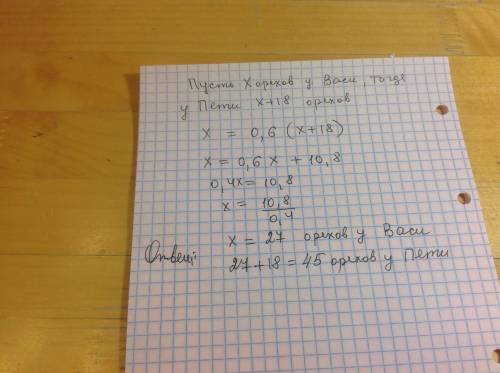 Пусть X орехов у Васи, тогда
у Пети x+18 орехов
x = 0,6 (x+18)
x = 0,6x + 10,8
0,4x = 10,8
x = 10,8/0,4
x = 27 орехов у Васи
Ответ: 27+18 = 45 орехов у Пети